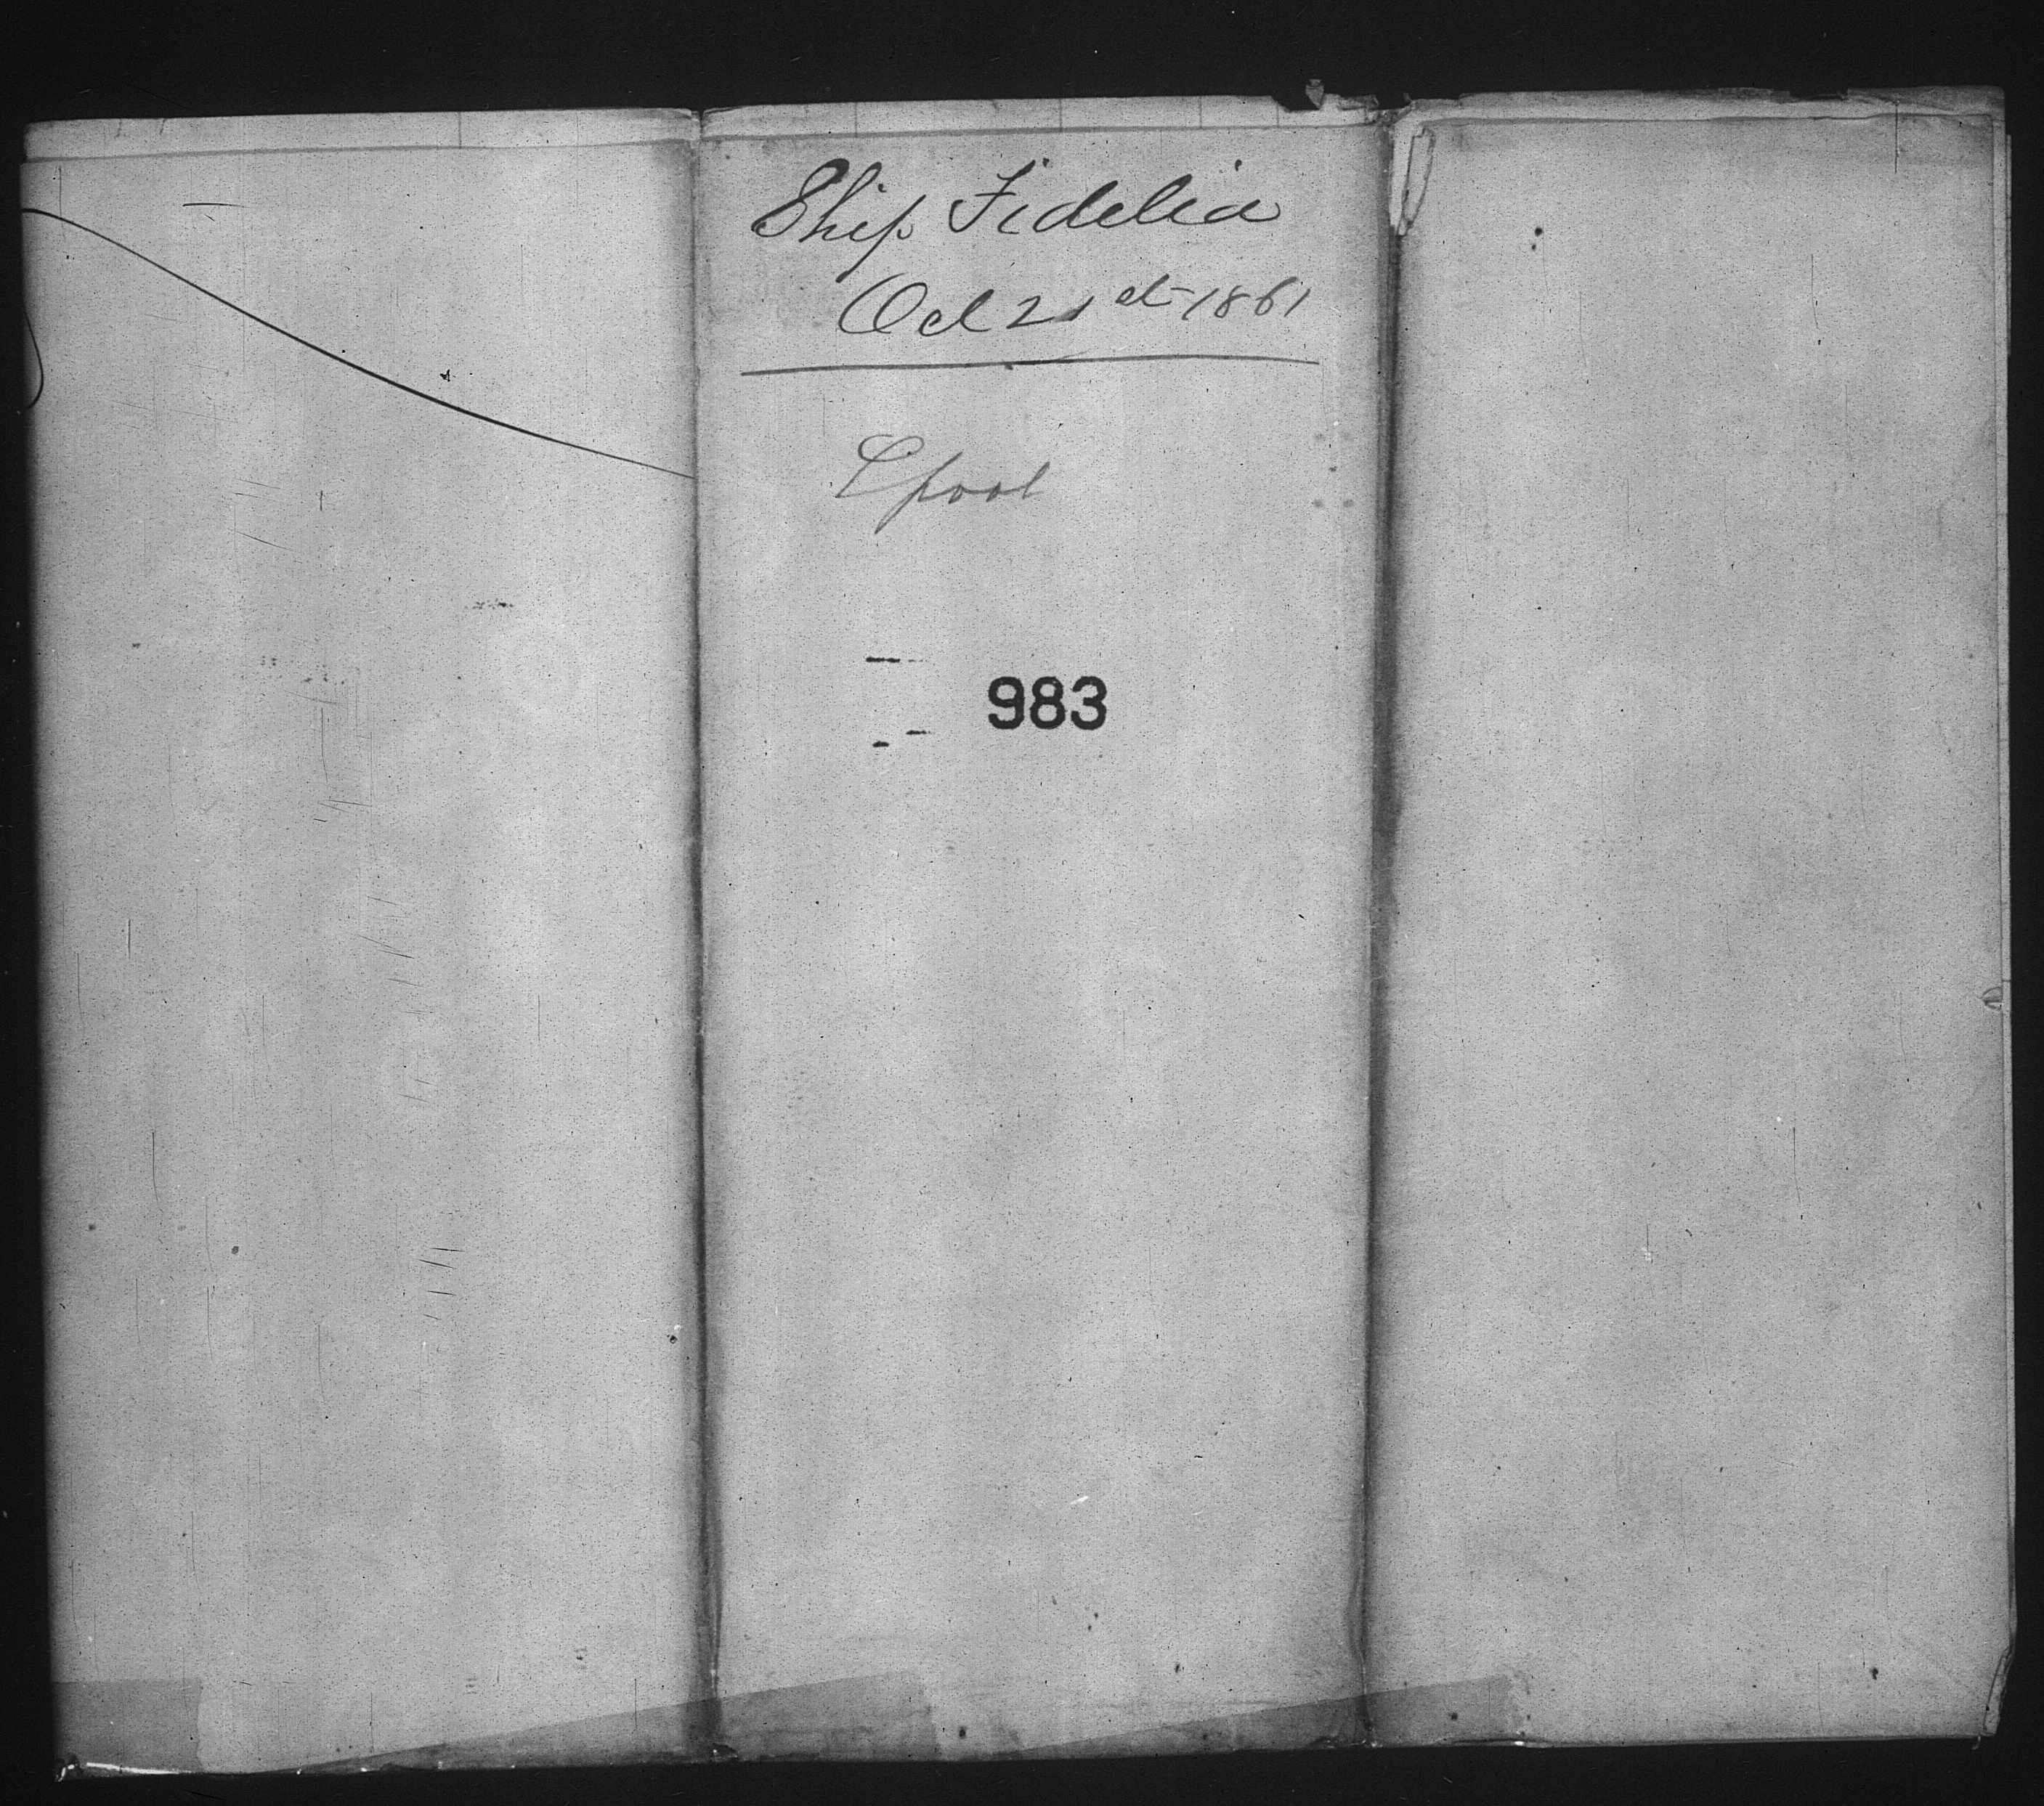 Ship Fidelia
Oct 21st 1861
Lpool
983